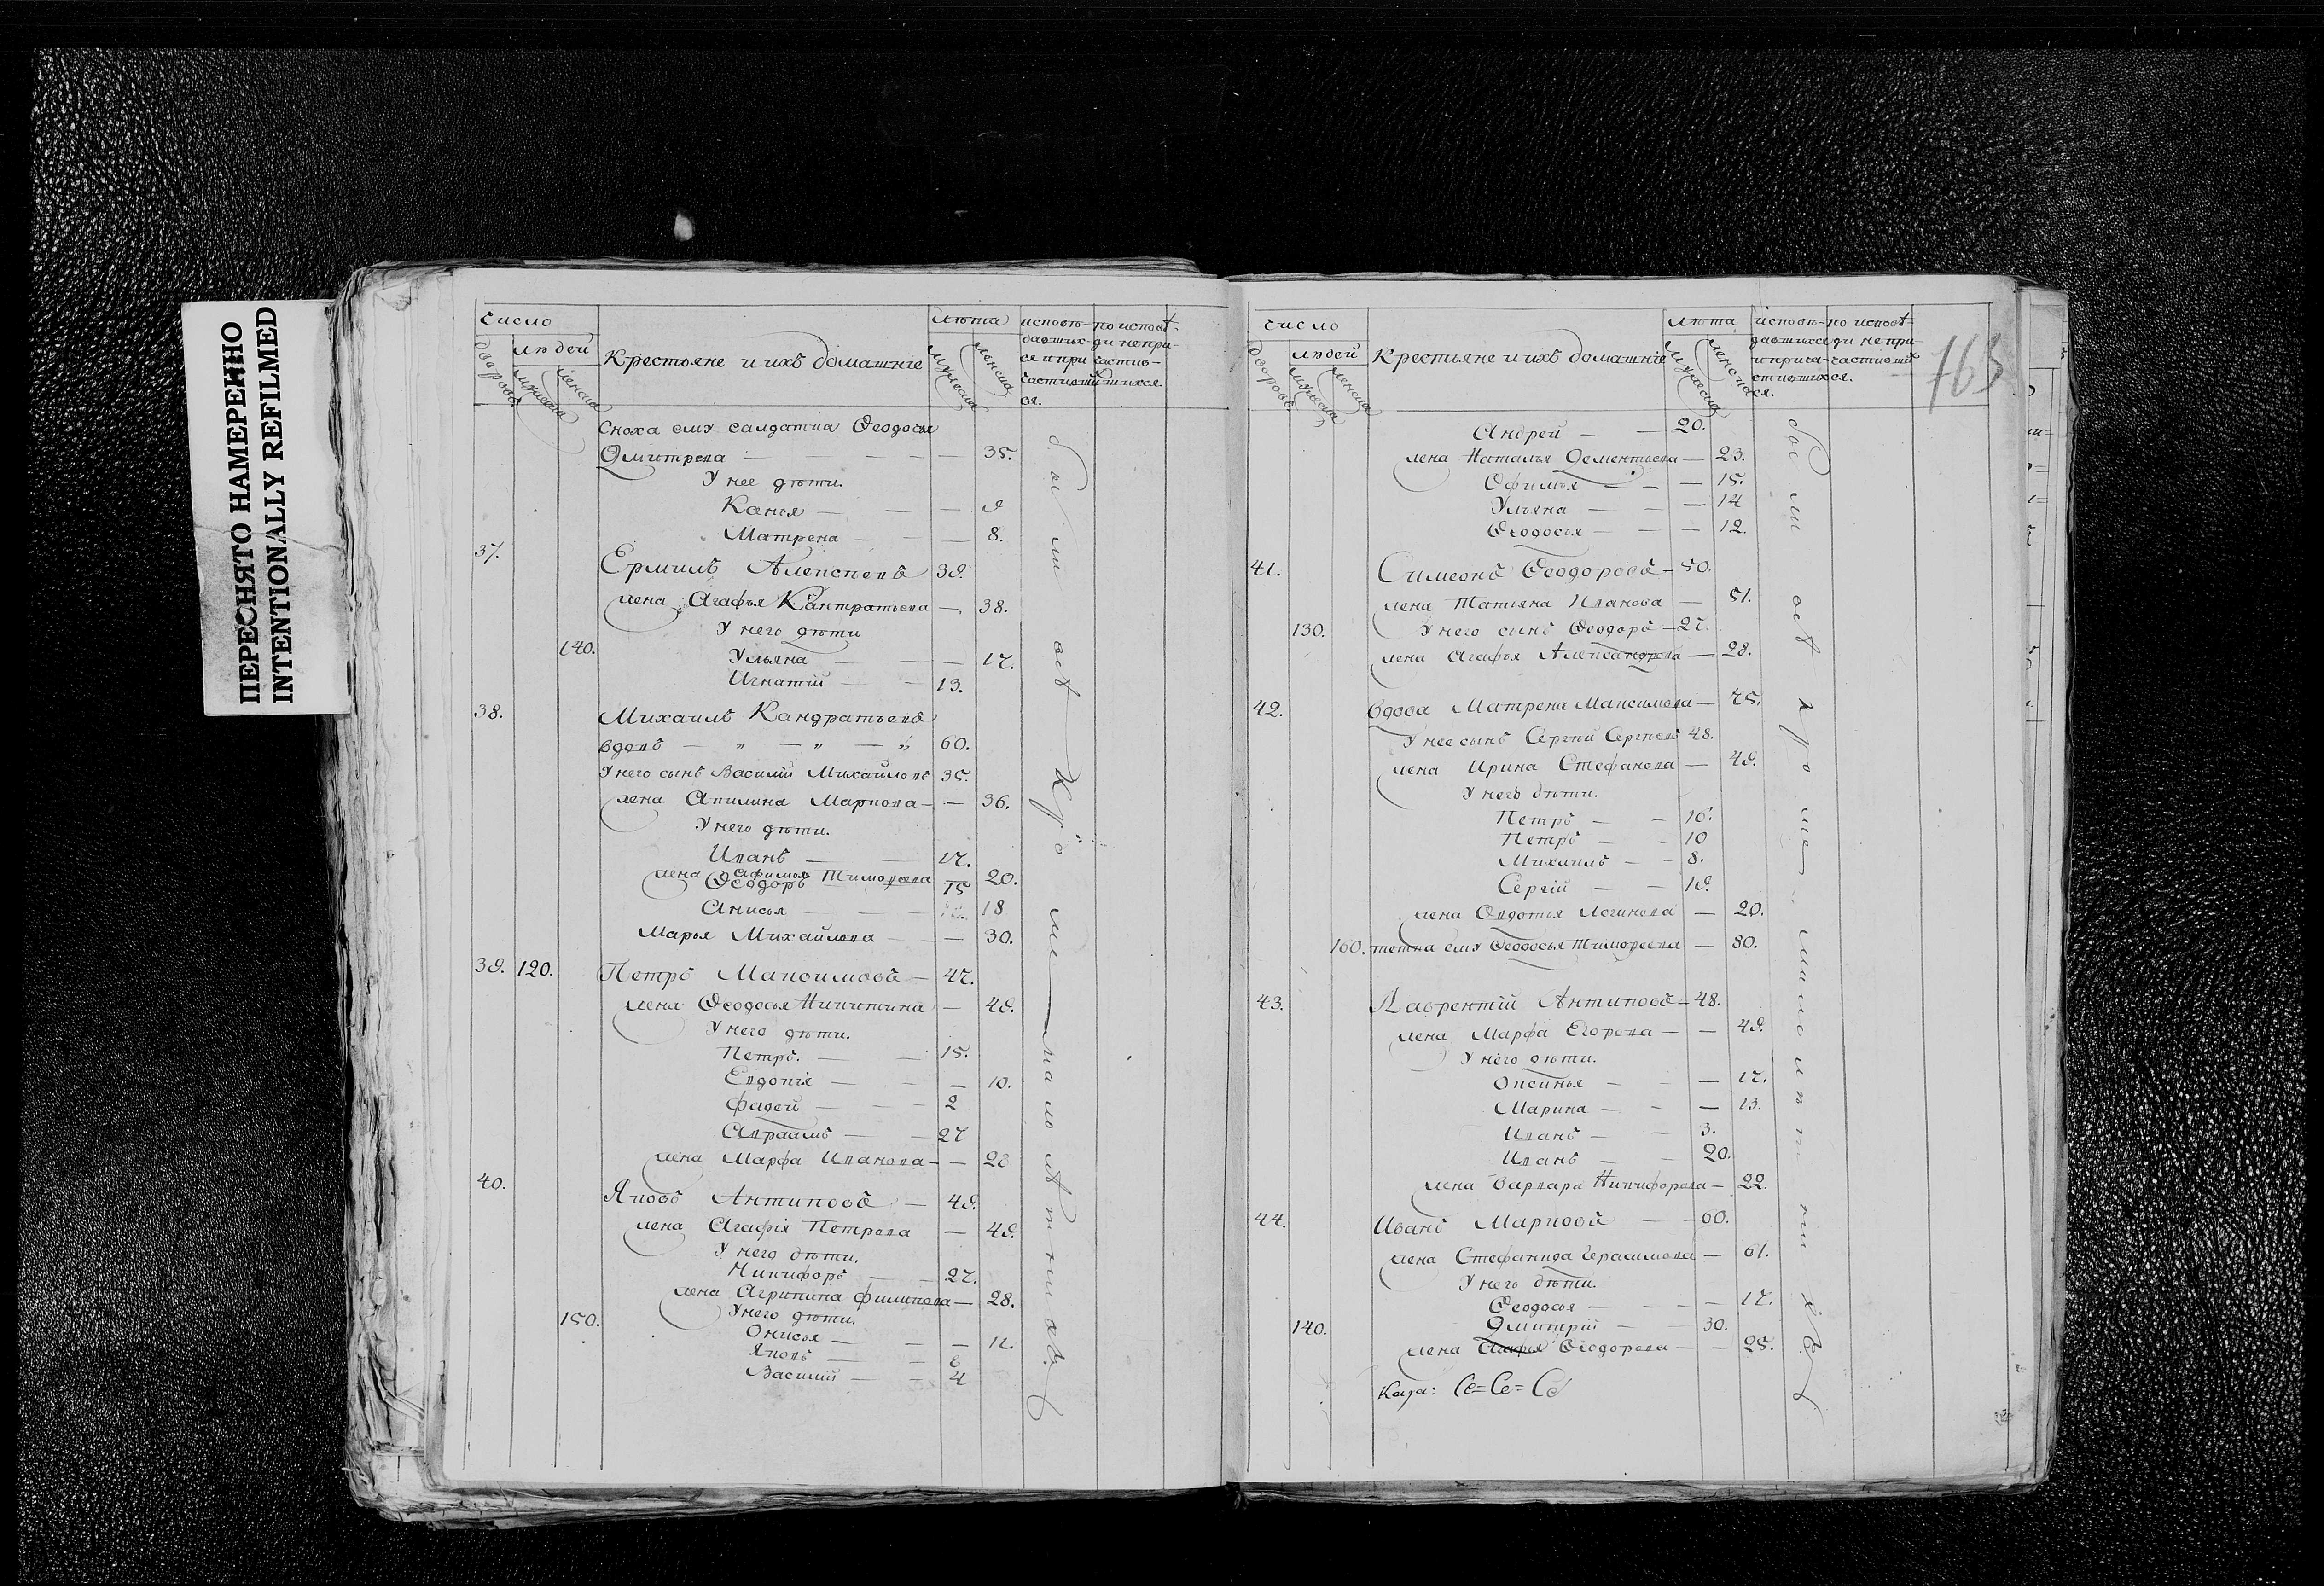 ПЕРЕСНЯТО НАМЕРЕННО
INTENTIONALLY REFILMED
Число
дворовъ
людей
мужеска
женска
Крестьяне и ихъ домашнiе
Лѣта
мужеска
женска
исповѣ-
давших-
ся и при
частивши
ся.
по исповѣ-
ди непри-
частив-
шихся.
Сноха ему салдатка Ѳеодосья
Дмитрева — 35.
У нее дѣти.
— 9
Матрена — 8.
37. Ермилъ Алексѣевъ 39.
жена Агафья Кантратьева — 38.
У него дѣти
140. Ульяна — 17.
Игнатiй — 13.
38. Михаилъ Кандратьевъ
вдовъ — „ — „ — „ 60.
У него сынъ Василiй Михайловъ 35.
жена Акилина Маркова — 36.
У него дѣти.
Иванъ — 17.
жена Афимья Тимофеева 20.
Ѳеодоръ 15
Анисья — 18
Марья Михайлова — 30.
39. 120. Петръ Максимовъ — 47.
жена Ѳеодосья Никитина — 49.
У него дѣти.
Петръ. — 15.
Евдокiя — 10.
Фадей — 2
Авраамъ — 27
жена Марфа Иванова — 28
40. Яковъ Антиповъ — 49.
жена Агафiя Петрова — 49.
У него дѣти.
Никифоръ — 27.
жена Агрипина Филипова — 28.
У него дѣти.
150. Онисья — 12.
Яковъ — 6
Василiй — 4
были всѣ кроме — малолѣтнихъ
Число
дворовъ
людей
мужеска
женска
Крестьяне и ихъ домашнiе
Лѣта
мужеска
женска
исповѣ-
давшихся
и прича-
стившихся.
по исповѣ-
ди непри-
частивши
ся.
165
Андрей — 20.
жена Наталья Дементьева — 23.
Офимья — 15.
Ульяна — 14
Ѳеодосья — 12.
41. Симеонъ Ѳеодоровъ — 50.
жена Татiяна Иванова — 51.
130. У него сынъ Ѳеодоръ — 27.
жена Агафья Александрова — 28.
42. Вдова Матрена Максимова — 75.
У нее сынъ Сергiй Сергѣевъ 48.
жена Ирина Стефанова — 49.
У него дѣти.
Петръ — 16.
Петръ — 10
Михаилъ — 8.
Сергiй — 19.
жена Овдотья Логинова — 20.
160. тетка ему Ѳеодосья Тимофеева — 80.
43. Лаврентiй Антиповъ — 48.
жена Марфа Егорова — 49.
У него дѣти.
Оксинья — 17.
Марина — 13.
Иванъ — 3.
Иванъ — 20.
жена Варвара Никифорова — 22.
44. Иванъ Марковъ — 60.
жена Стефанида Герасимова — 61.
У него дѣти.
Ѳеодосья — 17.
140. Дмитрiй — 30.
жена Агафья Ѳеодорова — 25.
были всѣ кроме малолѣтнихъ